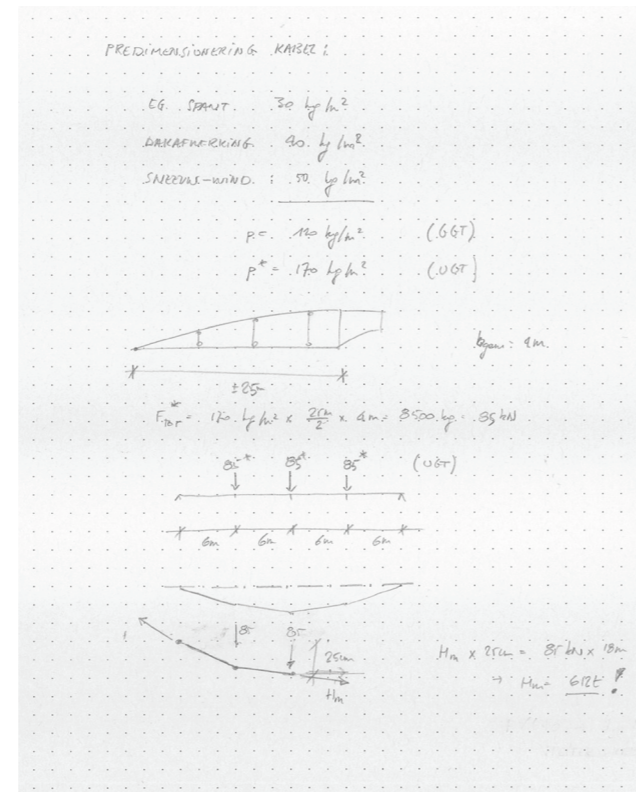 PREDIMENSIONERING KABEL:
EG. SPANT. 30 kg/m²
DAKAFWERKING 40 kg/m²
SNEEUW-WIND : 50 kg/m²
p = 120 kg/m² (GGT)
p* = 170 kg/m² (UGT)
= 4m
±25m
= 170 kg/m² × 25m/2 × 4m = 8500 kg = 85 kN
85* 85* 85* (UGT)
6m 6m 6m 6m
85 85
25cm
Hm
Hm × 25cm = 85 kN × 18m
→ Hm = 612t !